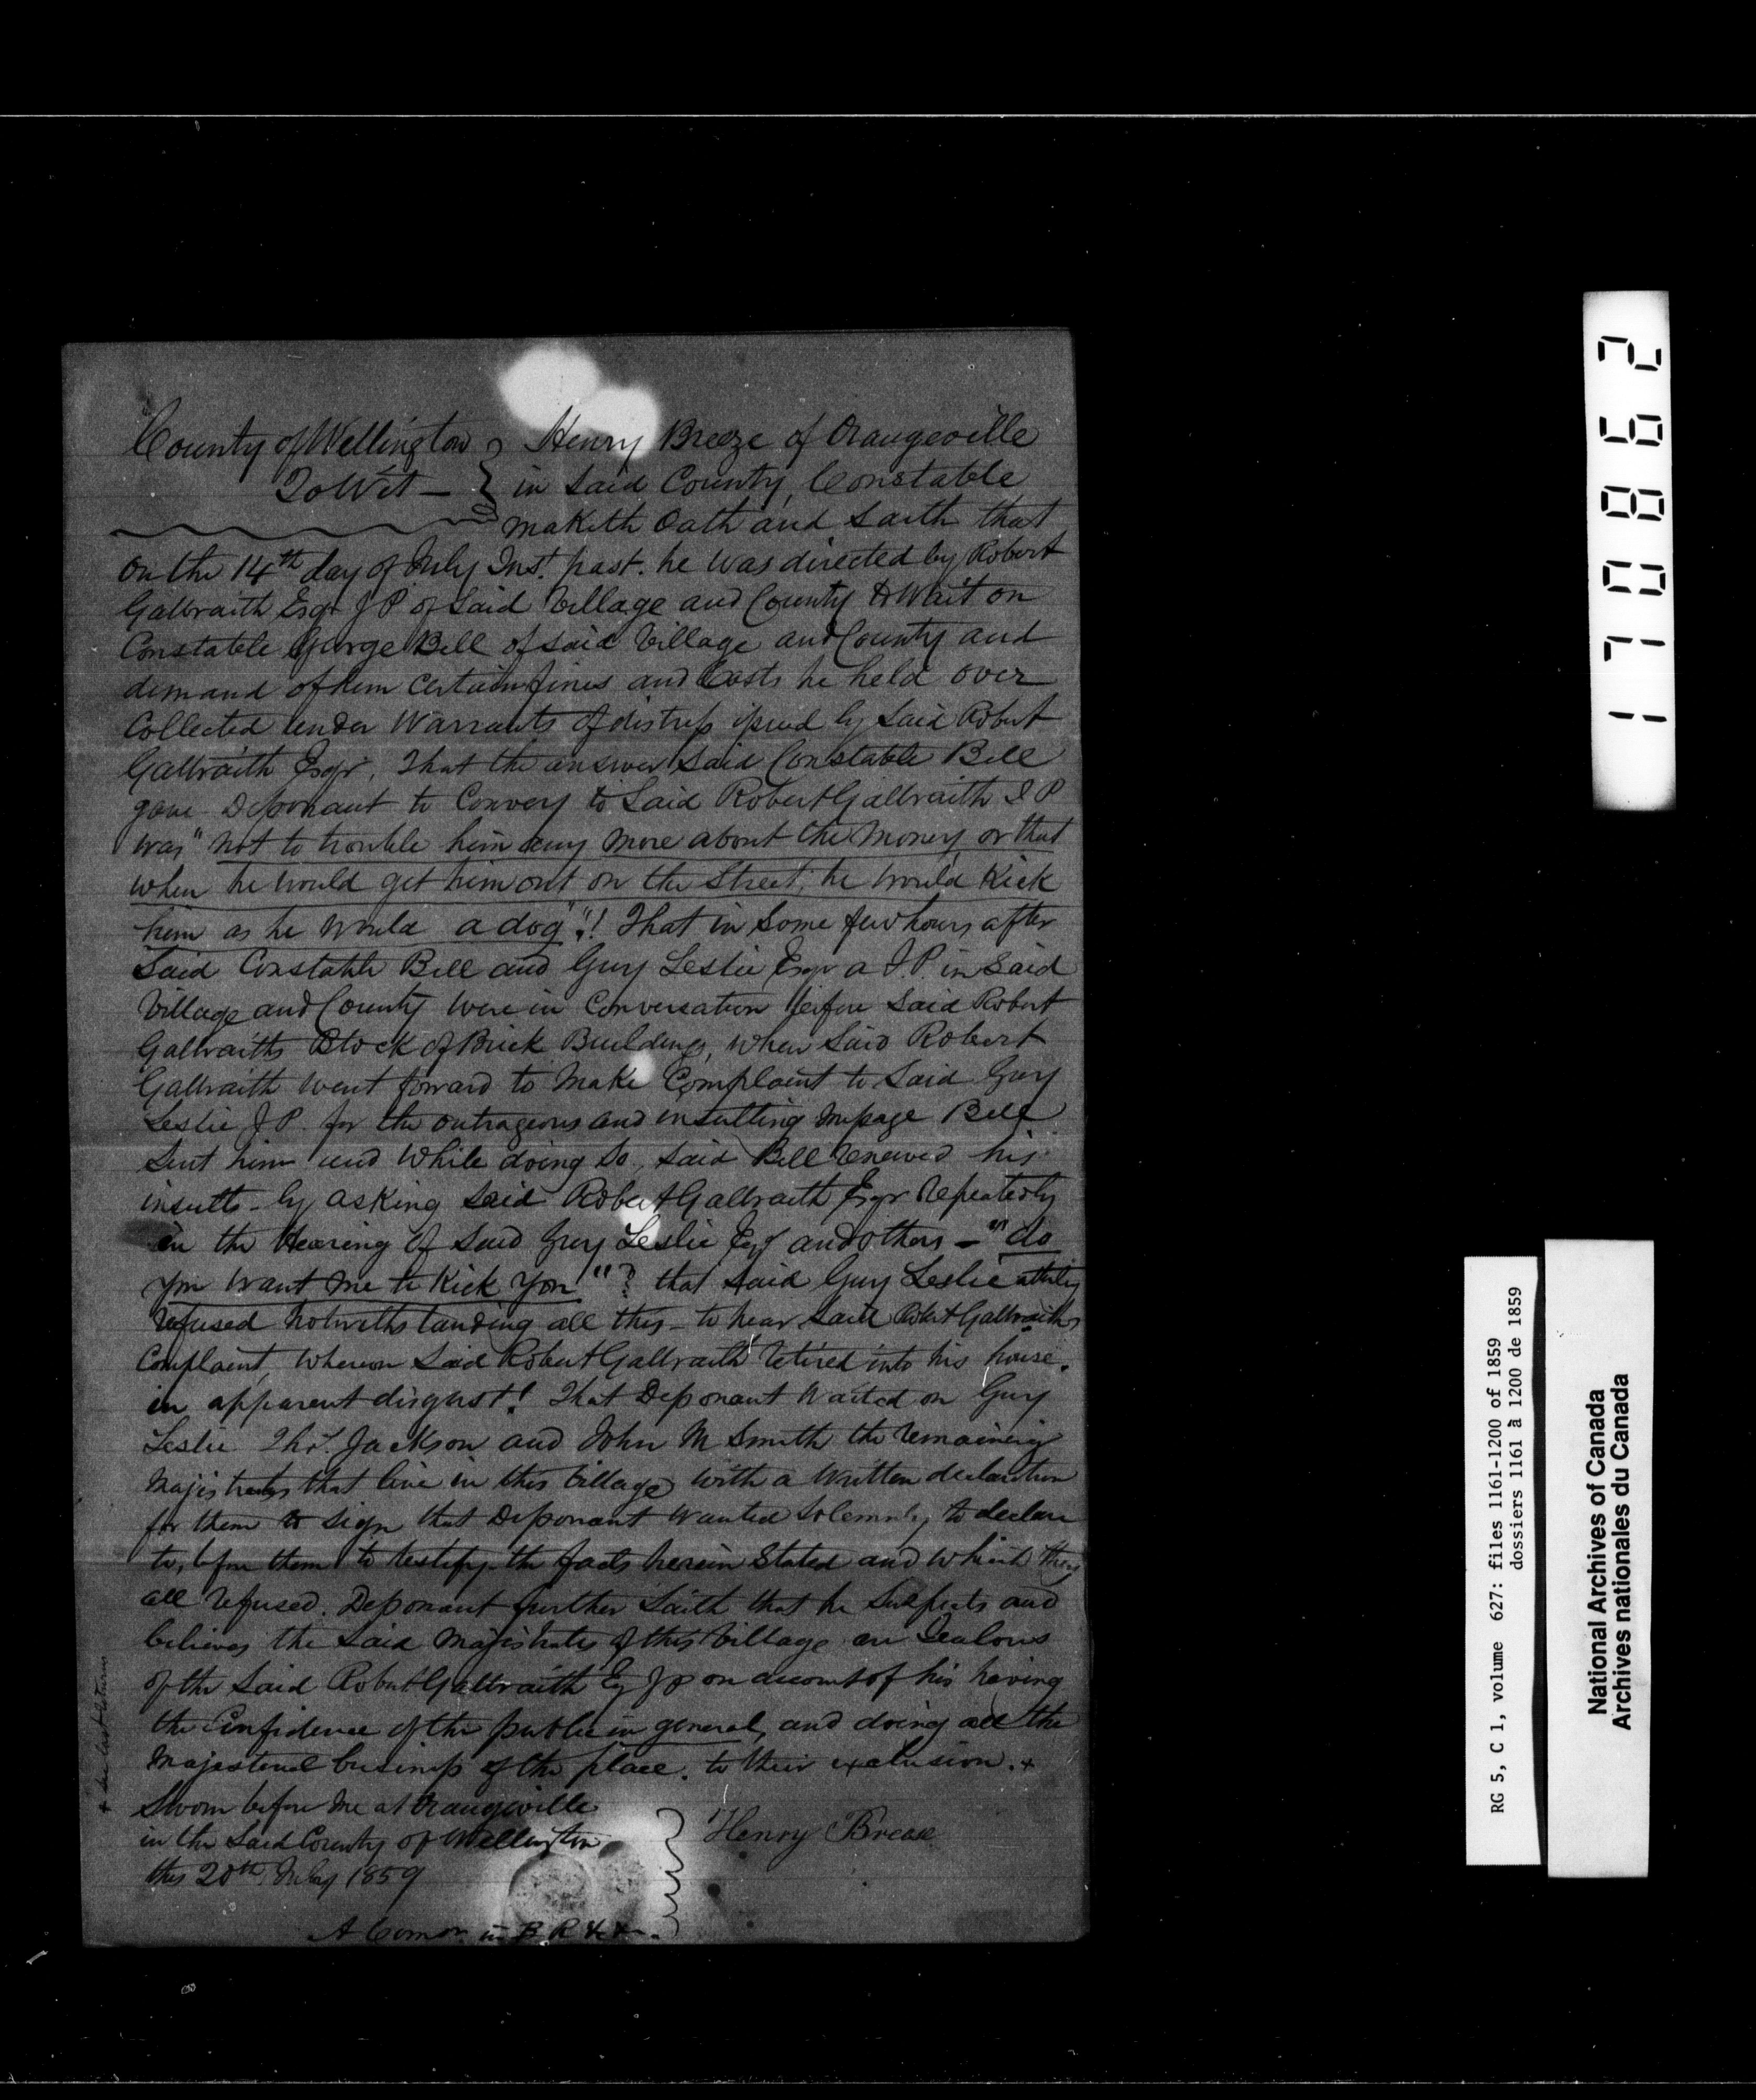 County of Wellington } Henry Breeze of Orangeville
To Wit — } in said County, Constable
maketh Oath and saith that
on the 14th day of July Inst. past. he was directed by Robert
Galbraith Esqr J P of said Village and County to wait on
Constable George Bell of said Village and County and
demand of him certain fines and Costs he held over
Collected under Warrants of distress issued by said Robert
Galbraith Esqr. That the answer said Constable Bell
gave Deponant to Convey to said Robert Galbraith J P
was "not to trouble him any more about the money, or that
when he would get him out on the street, he would Kick
him as he would a dog"! That in some few hours after
said Constable Bell and Guy Leslie Esqr a J.P. in said
Village and County were in Conversation before said Robert
Galbraiths Block of Brick Buildings, when said Robert
Galbraith went forward to make Complaint to said Guy
Leslie J P. for the outrageous and insulting message Bell
sent him and while doing so, said Bell renewed his
insults - by asking said Robert Galbraith Esqr repeatedly
in the Hearing of said Guy Leslie Esqr and others — "do
you want me to Kick you"? that said Guy Leslie utterly
refused notwithstanding all this - to hear said Robert Galbraiths
Complaint, whereon said Robert Galbraith retired into his house.
in apparent disgust! That Deponant waited on Guy
Leslie Thos. Jackson and John M Smith the remaining
Majistrates that live in this Village with a written declaration
for them to sign that Deponant wanted solemnly to declare
to, before them to testify the facts herein stated and which they
all refused. Deponant further saith that he suspects and
believes the said Majistrates of this Village are Jealous
of the said Robert Galbraith Esq JP on account of his having
the Confidence of the public in general, and doing all the
Majesterial business of the place, to their exclusion. +
Sworn before me at Orangeville
in the said County of Wellington
this 20th July 1859
Henry Brease
A Comr in B R &c
+ See last Returns
170862
RG 5, C 1, volume 627: files 1161-1200 of 1859
dossiers 1161 à 1200 de 1859
National Archives of Canada
Archives nationales du Canada